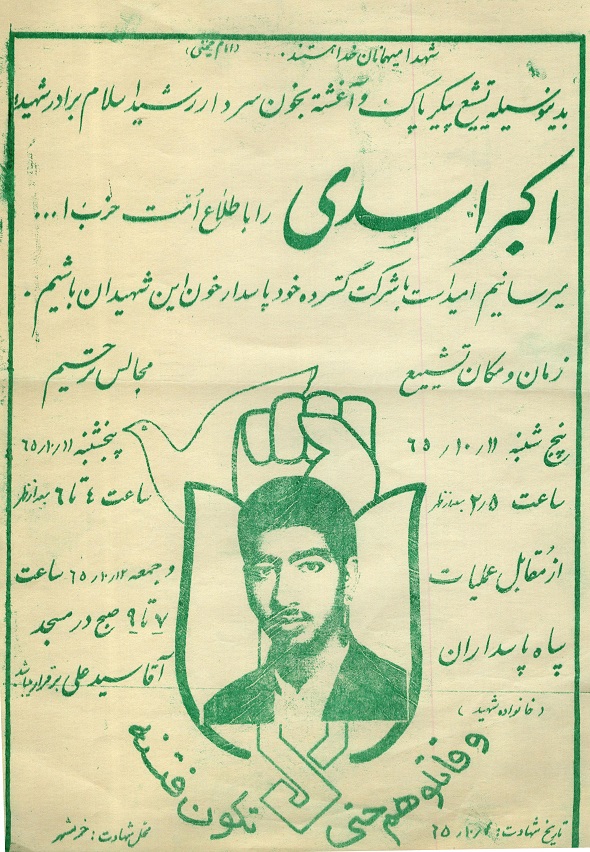 شهدا میهمانان خدا هستند. (امام خمینی)
بدینوسیله تشیع پیکر پاک و آغشته بخون سردار رشید اسلام برادر شهید
اکبر اسدی را باطلاع اُمت حزب ا...
میرسانیم امید است با شرکت گسترده خود پاسدار خون این شهیدان باشیم.
زمان و مکان تشییع
پنج شنبه ۶۵/۱۰/۱۱
ساعت ۲/۵ بعدازظهر
از مُقابل عملیات
سپاه پاسداران
(خانواده شهید)
مجالس ترحیم
پنجشنبه ۶۵/۱۰/۱۱
ساعت ۴ تا ۶ بعدازظهر
و جمعه ۶۵/۱۰/۱۲ ساعت
۷ تا ۹ صبح در مسجد
آقا سید علی برقرار میباشد
و قاتلوهم حتی لا تکون فتنه
تاریخ شهادت: ۶۵/۱۰/
محل شهادت: خرمشهر